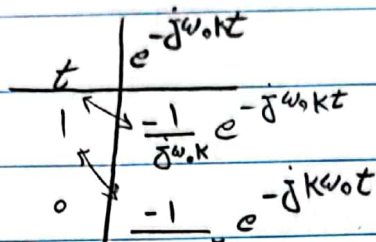 t e^{-jω₀kt}
1 -1/(jω₀k) e^{-jω₀kt}
0 -1 e^{-jkω₀t}